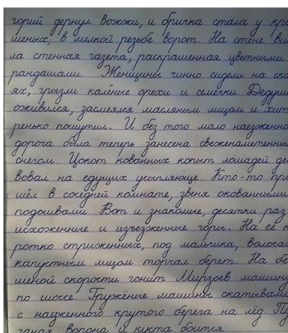 горий дернул вожжи, и бричка стала у кра
шеных, в мелкой резьбе ворот. На стене ви
ла стенная газета, раскрашенная цветными
рандашами. Женщины чинно сидели на ска
ях, грызли калёные орехи и семечки. Дедуш
оживился, заслеялся масляным лицом и хит
ренько пошутил. И без того мало наезженна
дорога была теперь занесена свеженаметённым
снегом. Цокот кованных копыт лошадей дей
вовал на едущих усыпляюще. Кто-то про
шёл в соседней комнате, звеня окованными
подошвами. Вот и знакомые, десятки раз
исхоженные и изъезженные горы. На её ко
ротко стриженных, под мальчика, волосах
капустным лицом торчал берет. На бе
шеной скорости гонит Мирзоев машину
по шоссе. Гружёные машины скатывали
с наезженного крутого берега на лёд. Пу
ганая ворона и куста боится.